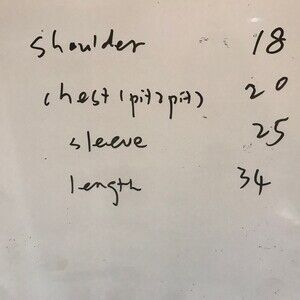 shoulder 18
chest (pit2pit) 20
sleeve 25
length 34